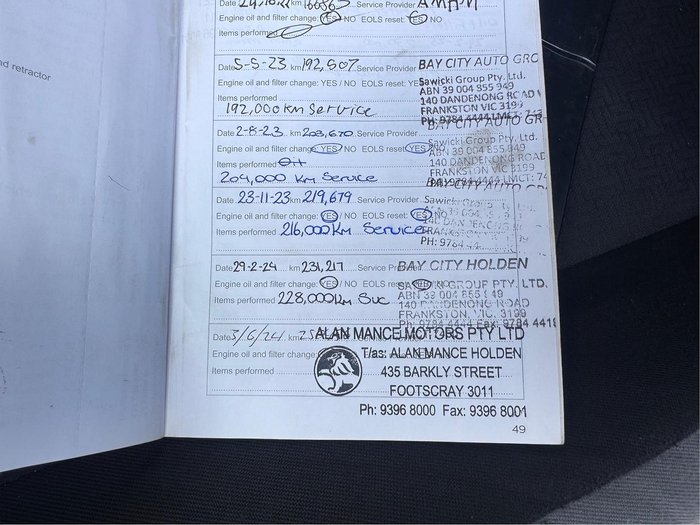 nd retractor
Date 24.10.22 km 166563 Service Provider AMAM
Engine oil and filter change: YES / NO EOLS reset: YES / NO
Items performed
Date 5-5-23 km 192,507 Service Provider BAY CITY AUTO GRO
Engine oil and filter change: YES / NO EOLS reset: YE
Sawicki Group Pty. Ltd.
ABN 39 004 855 949
Items performed
140 DANDENONG ROAD
192,000km Service
FRANKSTON VIC 3199
PH: 9784 4444 LMCT:
Date 2-8-23 km 203,670 Service Provider BAY CITY AUTO GR
Engine oil and filter change: YES / NO EOLS reset: YES / NO
Group Pty. Ltd.
ABN 39 004 855 949
Items performed
140 DANDENONG ROAD
204,000 Km Service
FRANKSTON VIC 3199
Date 23-11-23 km 219,679 Service Provider BAY CITY AUTO GR
Sawicki
Engine oil and filter change: YES / NO EOLS reset: YES / NO
Items performed 216,000Km Service
PH: 9784
Date 29-2-24 km 231,217 Service Provider BAY CITY HOLDEN
Engine oil and filter change: YES / NO EOLS reset:
GROUP PTY. LTD.
Items performed 228,000Km Svc
ABN 39 004 855 949
140 DANDENONG ROAD
FRANKSTON, VIC, 3199
Ph: 9784 4444 Fax: 9784 441
Date 3/6/24 km ALAN MANCE MOTORS PTY LTD
Engine oil and filter change T/as: ALAN MANCE HOLDEN
Items performed 435 BARKLY STREET
FOOTSCRAY 3011
Ph: 9396 8000 Fax: 9396 8001
49